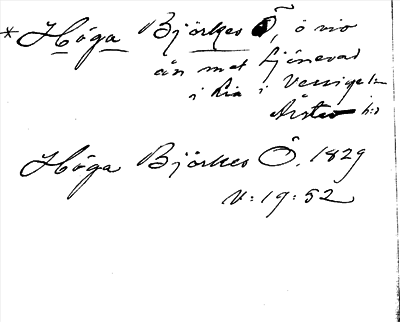 * Höga Björkes Ö, ö vid
ån mot Fjönevad
i Lia i Vessige sn
Årstad hd
Höga Björkes Ö. 1829
V:19:52